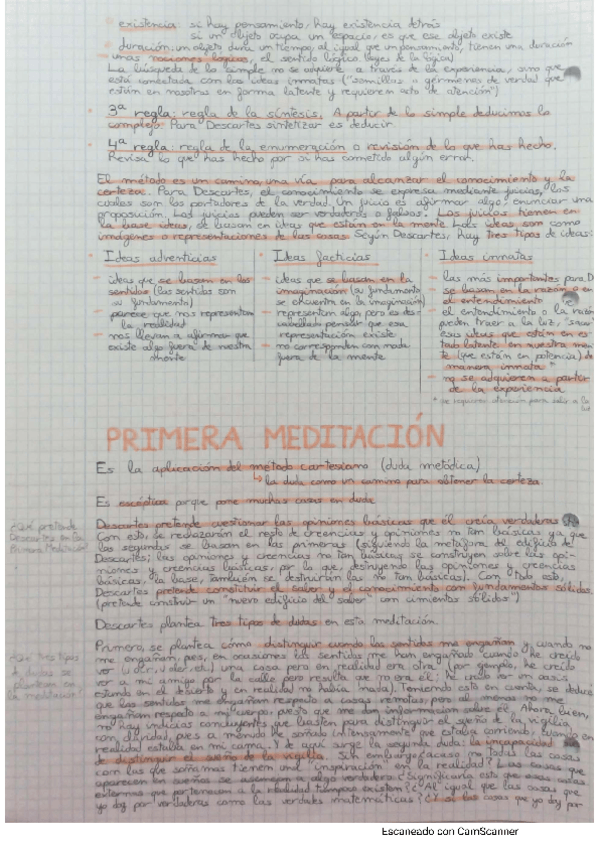 existencia: si hay pensamiento, hay existencia detrás
si un objeto ocupa un espacio, es que ese objeto existe
duración: un objeto dura un tiempo, al igual que un pensamiento, tienen una duración
- unas nociones lógicas, el sentido lógico (leyes de la lógica)
La búsqueda de lo simple no se adquiere a través de la experiencia, sino que
está conectada con las ideas innatas ("semillas o gérmenes de verdad que
están en nosotros en forma latente y requieren acto de atención")
3ª regla: regla de la síntesis. A partir de lo simple deducimos lo
complejo. Para Descartes sintetizar es deducir.
4ª regla: regla de la enumeración o revisión de lo que has hecho.
Revisa lo que has hecho por si has cometido algún error.
El método es un camino, una vía para alcanzar el conocimiento y la
certeza. Para Descartes, el conocimiento se expresa mediante juicios, los
cuales son los portadores de la verdad. Un juicio es afirmar algo, enunciar una
proposición. Los juicios pueden ser verdaderos o falsos. Los juicios tienen en
la base ideas, se basan en ideas que están en la mente. Las ideas son como
imágenes o representaciones de las cosas. Según Descartes, hay tres tipos de ideas:
Ideas adventicias
- ideas que se basan en los
sentidos (los sentidos son
su fundamento)
- parece que nos representan
la realidad
- nos llevan a afirmar que
existe algo fuera de nuestra
mente
Ideas facticias
- ideas que se basan en la
imaginación (su fundamento
se encuentra en la imaginación)
- representan algo, pero es des-
cabellado pensar que esa
representación existe
- no corresponden con nada
fuera de la mente
Ideas innatas
- las más importantes para D.
- se basan en la razón o en
el entendimiento
- el entendimiento o la razón
pueden traer a la luz, "sacar"
esas ideas que están en es-
tado latente en nuestra men-
te (que están en potencia) de
manera innata *
- no se adquieren a partir
de la experiencia
* se requiere atención para salir a la
luz
PRIMERA MEDITACIÓN
Es la aplicación del método cartesiano (duda metódica)
↳ la duda como un camino para obtener la certeza
Es escéptica porque pone muchas cosas en duda
¿Qué pretende
Descartes en la
Primera Meditación?
Descartes pretende cuestionar las opiniones básicas que él creía verdaderas
Con esto, se rechazarán el resto de creencias y opiniones no tan básicas ya que
las segundas se basan en las primeras (siguiendo la metáfora del edificio de
Descartes; las opiniones y creencias no tan básicas se construyen sobre las opi-
niones y creencias básicas, por lo que, destruyendo las opiniones y creencias
básicas, la base, también se destruirán las no tan básicas). Con todo esto,
Descartes pretende constituir el saber y el conocimiento con fundamentos sólidos.
(pretende construir un "nuevo edificio del saber" con cimientos sólidos")
Descartes plantea tres tipos de dudas en esta meditación.
¿Qué tres tipos
de dudas se
plantean en
la meditación?
Primero, se plantea cómo distinguir cuando los sentidos me engañan y cuando no
me engañan, pues, en ocasiones los sentidos me han engañado cuando he creído
ver (u oír u oler, etc.) una cosa pero en realidad era otra (por ejemplo, he creído
ver a mi amigo por la calle pero resulta que no era él; he creído ver un oasis
estando en el desierto y en realidad no había nada). Teniendo esto en cuenta, se deduce
que los sentidos me engañan respecto a cosas remotas, pero al menos no me
engañan respecto a mi cuerpo, puesto que me dan información sobre él. Ahora bien,
no hay indicios concluyentes que basten para distinguir el sueño de la vigilia
con claridad, pues a menudo he soñado intensamente que estaba corriendo, cuando en
realidad estaba en mi cama. Y de aquí surge la segunda duda: la incapacidad
de distinguir el sueño de la vigilia. Sin embargo, ¿acaso no todas las cosas
con las que soñamos tienen una inspiración en la realidad? Las cosas que
aparecen en sueños se asemejan a algo verdadero ¿Significaría esto que esas cosas
externas que pertenecen a la realidad tampoco existen? ¿Al igual que las cosas que
yo doy por verdaderas como las verdades matemáticas? ¿Y si las cosas que yo doy por
Escaneado con CamScanner